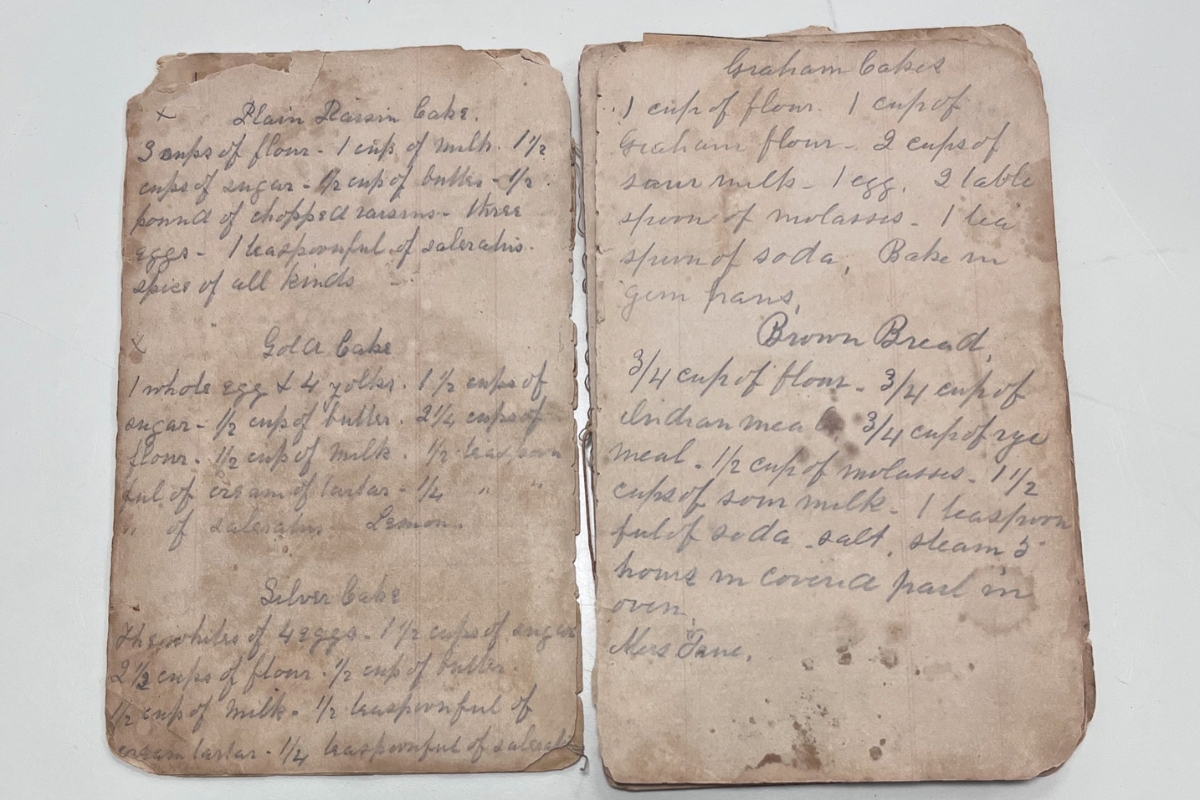 x Plain Raisin Cake.
3 cups of flour - 1 cup of milk. 1 1/2
cups of sugar - 1/2 cup of butter - 1/2
pound of chopped raisins - three
eggs - 1 teaspoonful of saleratus.
spice of all kinds
x Gold Cake
1 whole egg & 4 yolks. 1 1/2 cups of
sugar - 1/2 cup of butter. 2 1/4 cups of
flour. 1/2 cup of milk. 1/2 teaspoon
ful of cream of tartar - 1/4 " "
" of saleratus Lemon.
Silver Cake
The whites of 4 eggs - 1 1/2 cups of sugar
2 1/2 cups of flour. 1/2 cup of butter.
1/2 cup of milk - 1/2 teaspoonful of
cream tartar - 1/4 teaspoonful of salerat
Graham Cakes
1 cup of flour. 1 cup of
Graham flour - 2 cups of
sour milk - 1 egg. 2 table
spoon of molasses - 1 tea
spoon of soda, Bake in
gem pans,
Brown Bread,
3/4 cup of flour - 3/4 cup of
Indian meal. 3/4 cup of rye
meal - 1/2 cup of molasses - 1 1/2
cups of sour milk - 1 teaspoon
ful of soda - salt, steam 5
hours in covered pail in
oven.
Mrs